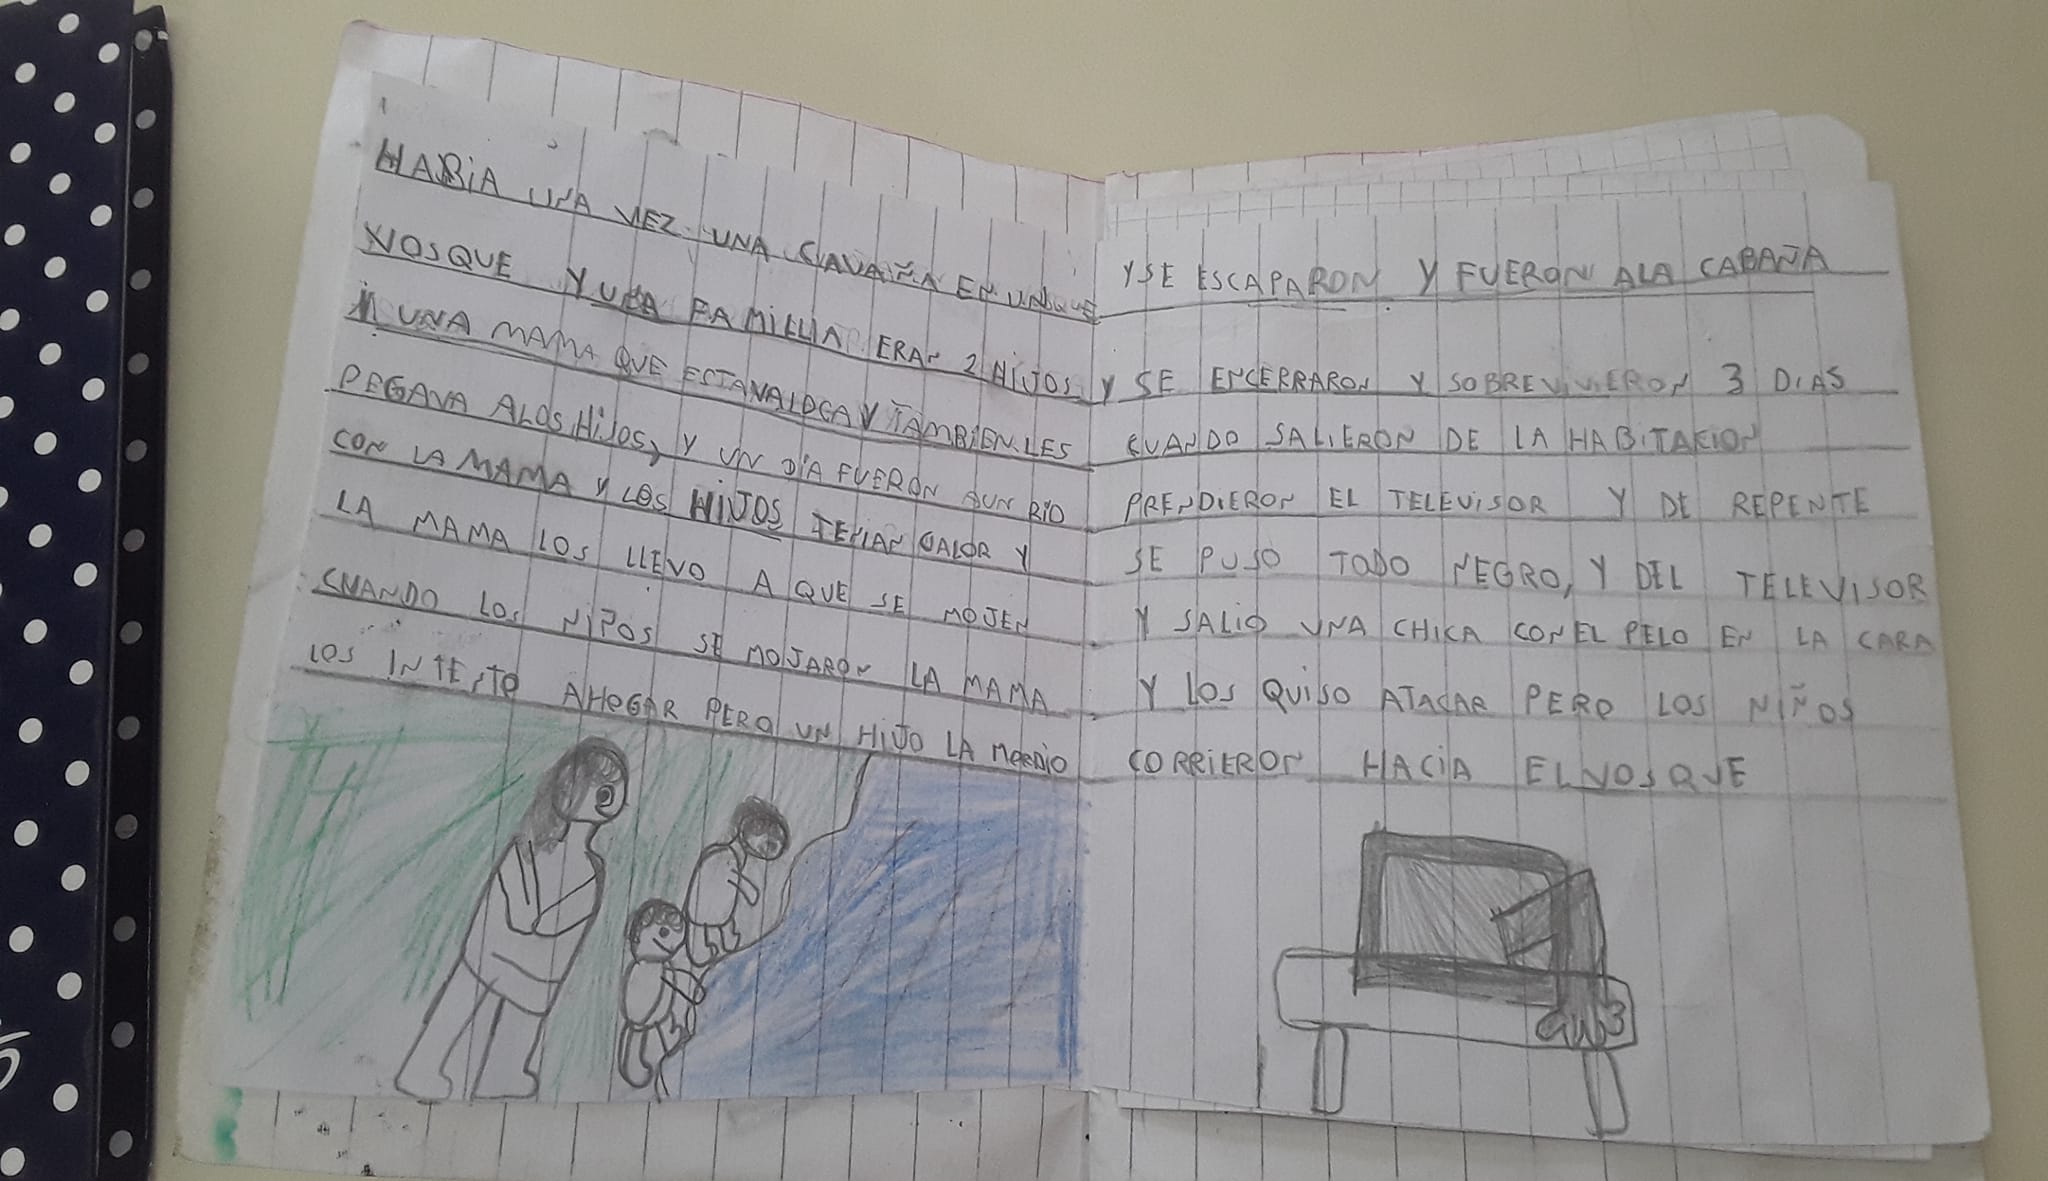 HABIA UNA VEZ UNA CAVAÑA EN UN QUE
VOSQUE Y UNA FAMILIA ERAN 2 HIJOS Y
UNA MAMA QUE ESTAVA LOCA Y TAMBIEN LES
PEGAVA A LOS HIJOS, Y UN DIA FUERON A UN RIO
CON LA MAMA Y LOS HIJOS TENIAN CALOR Y
LA MAMA LOS LLEVO A QUE SE MOJEN
CUANDO LOS NIÑOS SE MOJARON LA MAMA
LOS INTENTO AHOGAR PERO UN HIJO LA MORDIO
Y SE ESCAPARON Y FUERON A LA CABAÑA
SE ENCERRARON Y SOBREVIVIERON 3 DIAS
CUANDO SALIERON DE LA HABITAKION
PRENDIERON EL TELEVISOR Y DE REPENTE
SE PUSO TODO NEGRO, Y DEL TELEVISOR
Y SALIO UNA CHICA CON EL PELO EN LA CARA
Y LOS QUISO ATACAR PERO LOS NIÑOS
CORRIERON HACIA EL VOSQUE